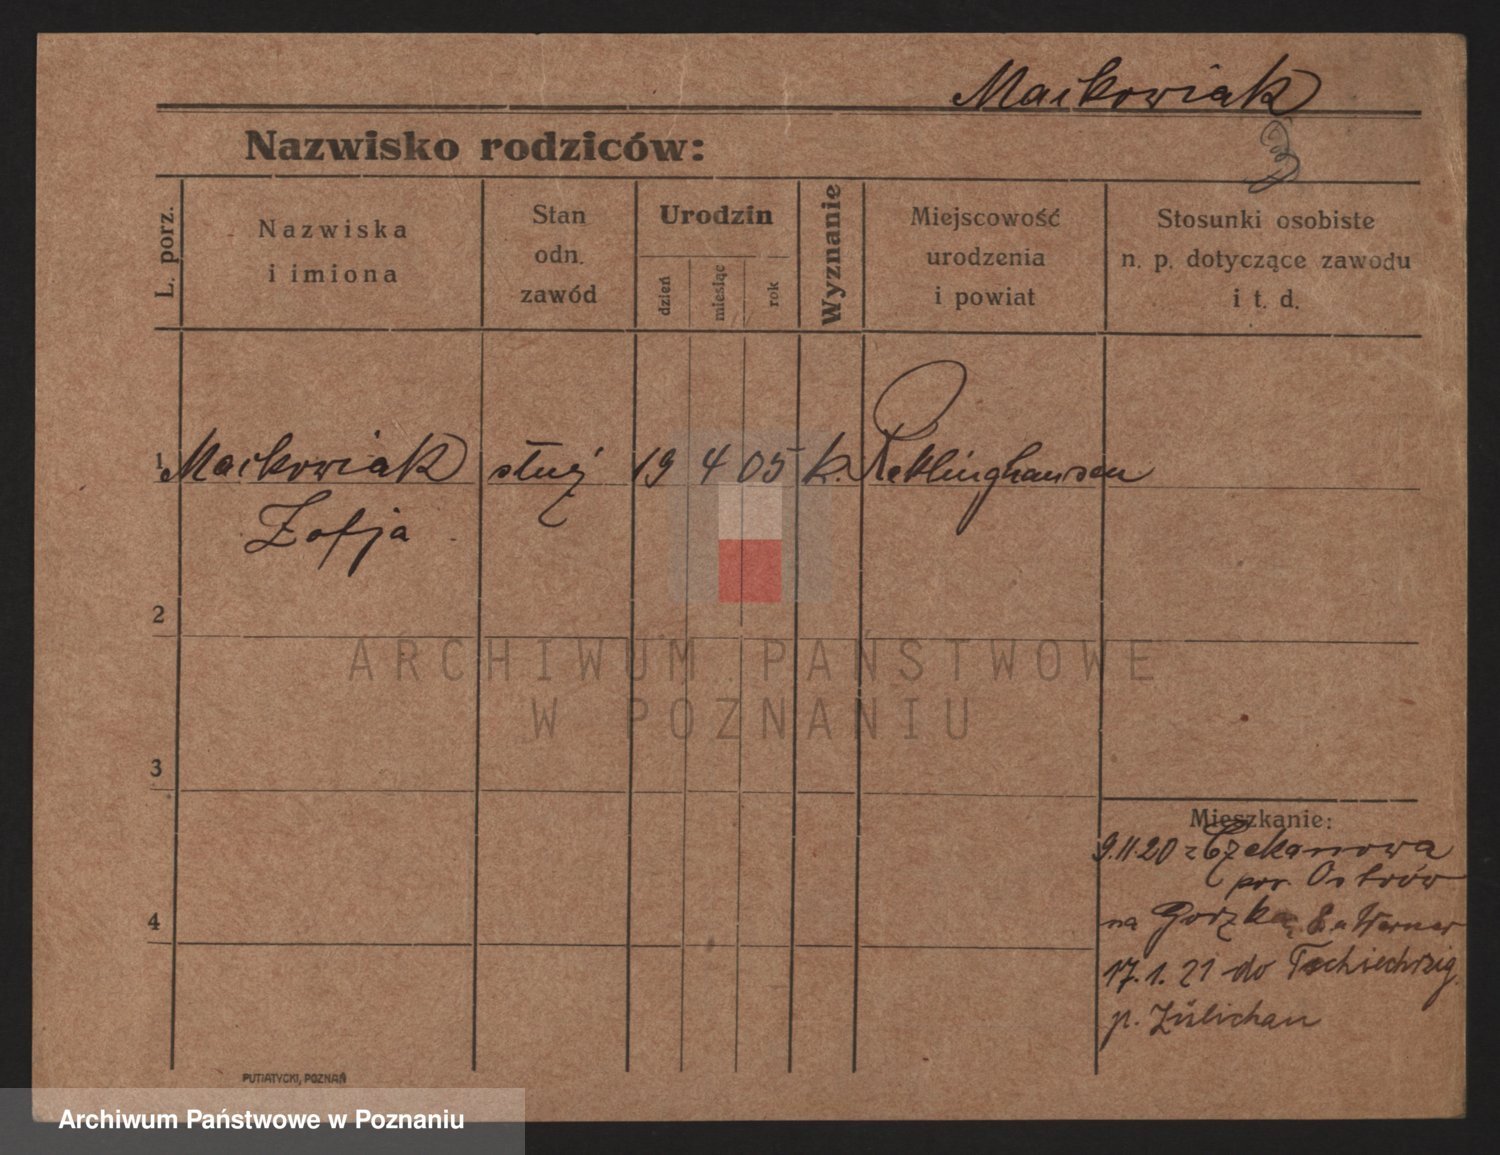 Maikowiak
Nazwisko rodziców:
L. porz.
Nazwiska
i imiona
Stan
odn.
zawód
Urodzin
dzień
miesiąc
rok
Wyznanie
Miejscowość
urodzenia
i powiat
Stosunki osobiste
n. p. dotyczące zawodu
i t. d.
1 Maikowiak służ 19 4 05 k. Reklinghausen
Zofja
2
3
4
Mieszkanie:
9.11.20 z Czekanowa
pow. Ostrów
na Gorzka
17.1.21 do
p. Züllichau
PUTIATYCKI, POZNAŃ
ARCHIWUM PAŃSTWOWE
W POZNANIU
Archiwum Państwowe w Poznaniu